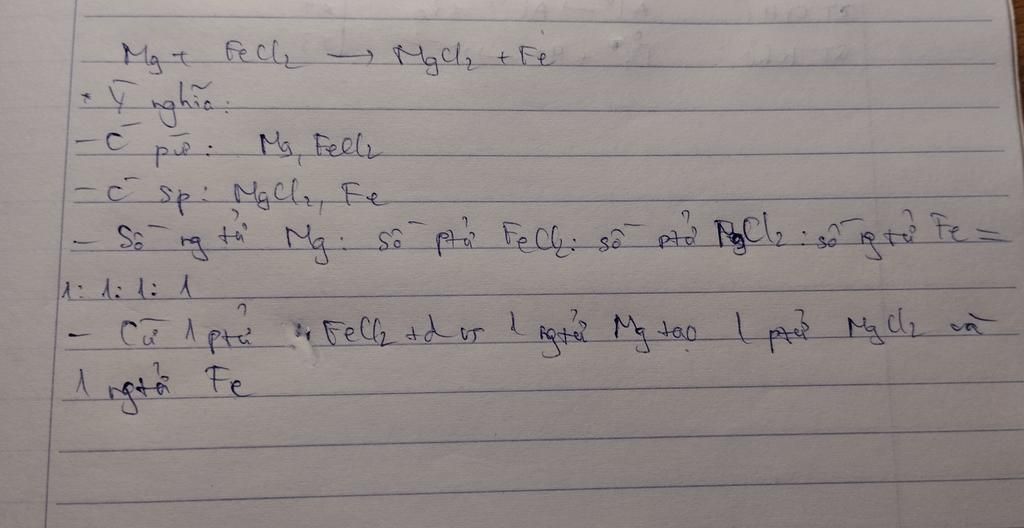 Mg + FeCl2 → MgCl2 + Fe
* Ý nghĩa:
- C pứ: Mg, FeCl2
- C sp: MgCl2, Fe
- Số ngtử Mg: số ptử FeCl2: số ptử MgCl2: số ngtử Fe =
1: 1: 1: 1
- Cứ 1 ptử FeCl2 +d vs 1 ngtử Mg tạo 1 ptử MgCl2 và
1 ngtử Fe